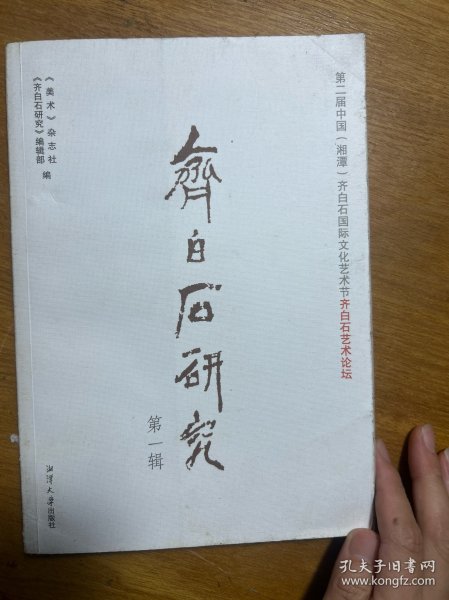 第二届中国（湘潭）齐白石国际文化艺术节齐白石艺术论坛
齊白石研究
第一辑
《美术》杂志社
《齐白石研究》编辑部
编
湘潭大学出版社
孔夫子旧书网
www.kongfz.com